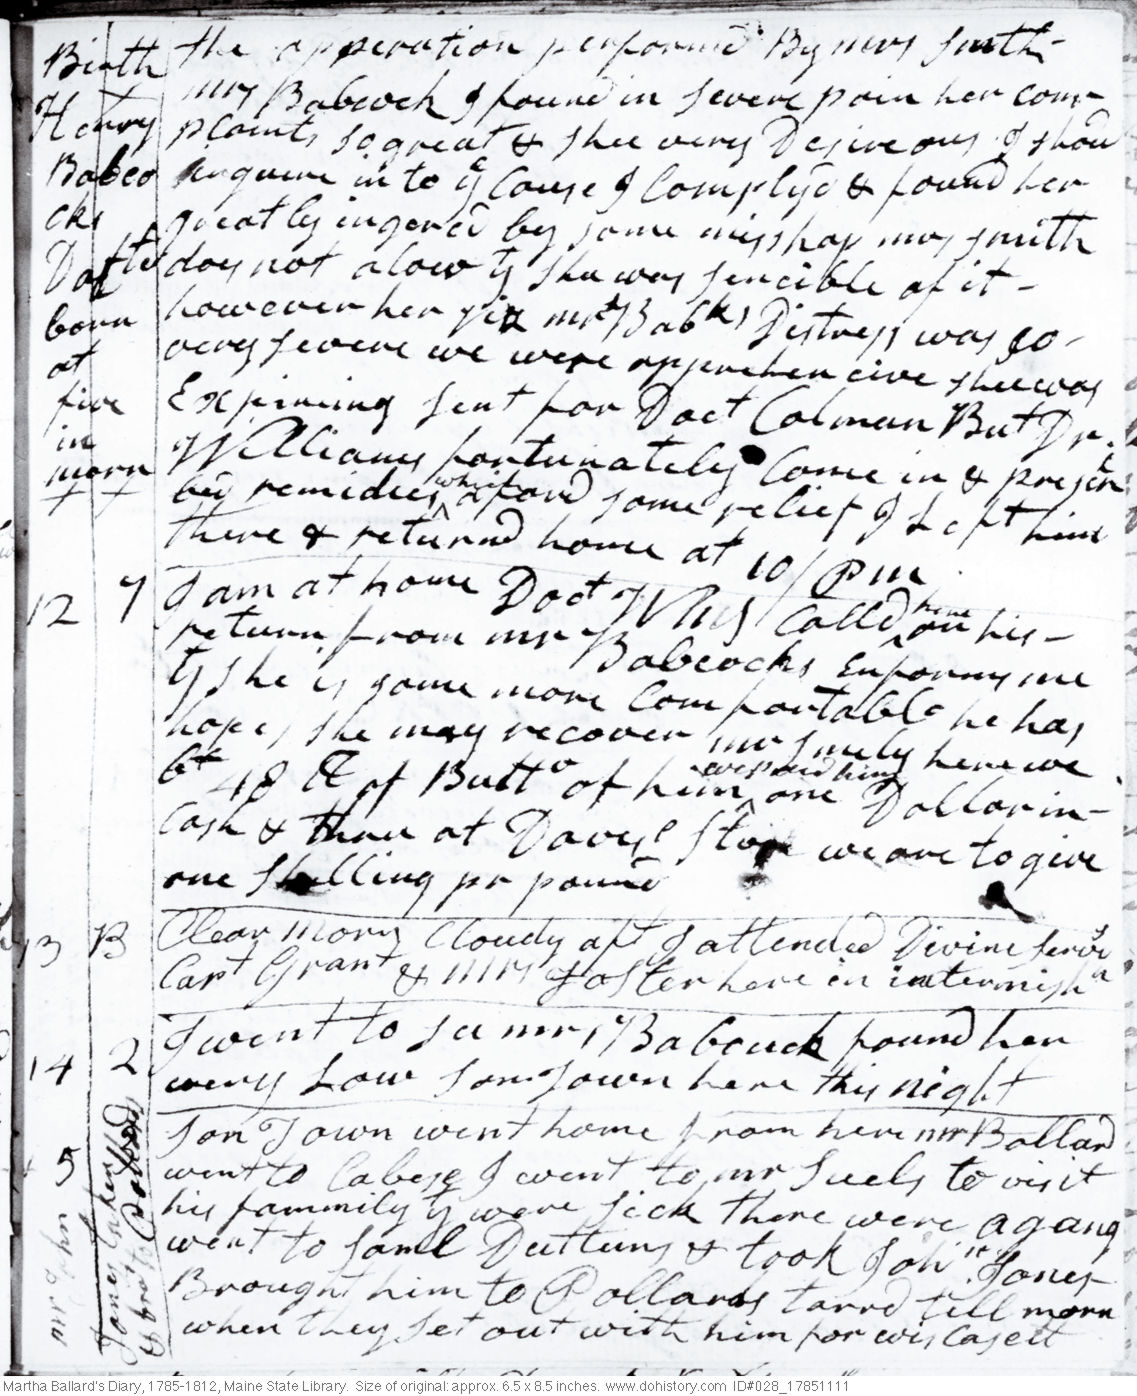 Birth
Henry
Babco
cks
Daftr
born
at
five
in
morn
the opperation performd By mrs smith
mrs Babcock I found in severe pain her com
plaints so great & shee very Desireous I shoud
enquire into ye Cause I Complyd & found her
greatly ingered by some misshap mrs smith
does not alow yt shee was sencible of it
however her viz mrs Babks Distress was so
very severe we were apprehencive shee was
Expiring sent for Doct Colman But Dr
Williams fortunately Come in & prescri
bed remidies which aford some relief I Left him
there & returnd home at 10 / PM
12 7 I am at home Doct Wms Calld here on his
return from mr Babcocks Enforms me
yt she is some more Comfortable he has
hopes she may recover mr Smely here we
bt 48 lb of Buttr of him we paid him one Dollar in
Cash & thru at Daviss Store we are to give
one Shilling pr pound
13 B Clear morng Cloudy aft I attended Divine servis
Capt Grant & mrs Foster here in intermishn
14 2 I went to see mrs Babcock found her
very Low son Town here this night
5 son Town went home from here mr Ballard
went to Cabese I went to mr Suels to visit
his fammily yt were sick there were a gang
went to saml Duttuns & took John Jones
Brought him to Pollards tarrd till morn
when they set out with him for wiscaset
Jones
& brot to Pollards
Martha Ballard's Diary, 1785-1812, Maine State Library. Size of original: approx. 6.5 x 8.5 inches. www.dohistory.com ID#028_17851111